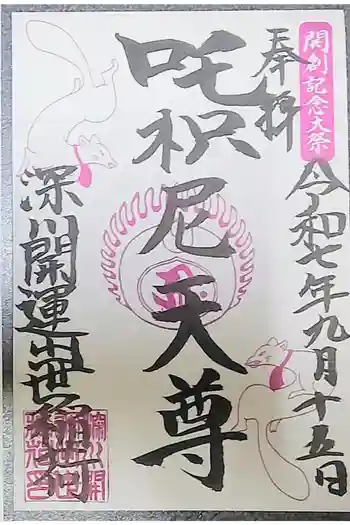 開創記念大祭
令和七年九月十五日
奉拝
吒枳尼天尊
深川開運出世稲荷